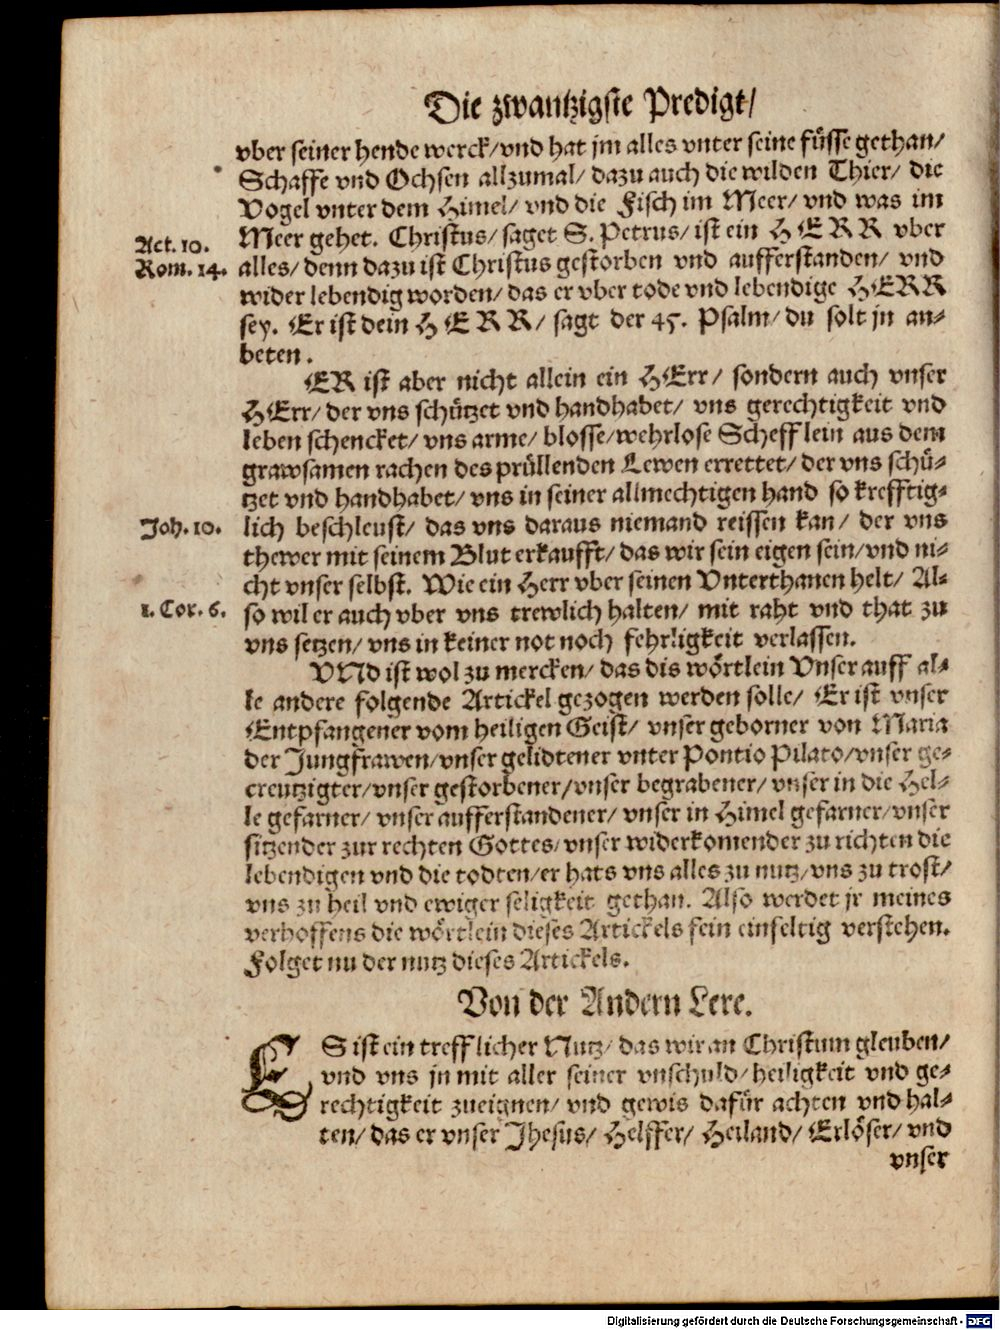 Die zwantzigste Predigt/
vber seiner hende werck/vnd hat jm alles vnter seine füsse gethan/
Schaffe vnd Ochsen allzumal/ dazu auch die wilden Thier/ die
Vogel vnter dem Himel/ vnd die Fisch im Meer/ vnd was im
Meer gehet. Christus/ saget S. Petrus/ ist ein HERR vber
Act. 10.
alles/ denn dazu ist Christus gestorben vnd aufferstanden/ vnd
Rom. 14.
wider lebendig worden/ das er vber tode vnd lebendige HERR
sey. Er ist dein HERR/ sagt der 45. Psalm/ du solt jn an-
beten.
ER ist aber nicht allein ein HErr/ sondern auch vnser
HErr/ der vns schützet vnd handhabet/ vns gerechtigkeit vnd
leben schencket/ vns arme/ blosse/wehrlose Schefflein aus dem
grawsamen rachen des prüllenden Lewen errettet/ der vns schü-
tzet vnd handhabet/ vns in seiner allmechtigen hand so krefftig-
lich beschleust/ das vns daraus niemand reissen kan/ der vns
Joh. 10.
thewer mit seinem Blut erkaufft/ das wir sein eigen sein/vnd ni-
cht vnser selbst. Wie ein Herr vber seinen Vnterthanen helt/ Al-
so wil er auch vber vns trewlich halten/ mit raht vnd that zu
1. Cor. 6.
vns setzen/ vns in keiner not noch fehrligkeit verlassen.
VNd ist wol zu mercken/ das dis wörtlein Vnser auff al-
le andere folgende Artickel gezogen werden solle/ Er ist vnser
Entpfangener vom heiligen Geist/ vnser geborner von Maria
der Jungfrawen/vnser gelidtener vnter Pontio Pilato/vnser ge-
creutzigter/vnser gestorbener/vnser begrabener/ vnser in die Hel-
le gefarner/ vnser aufferstandener/ vnser in Himel gefarner/vnser
sitzender zur rechten Gottes/vnser widerkomender zu richten die
lebendigen vnd die todten/er hats vns alles zu nutz/vns zu trost/
vns zu heil vnd ewiger seligkeit gethan. Also werdet jr meines
verhoffens die wörtlein dieses Artickels fein einfeltig verstehen.
Folget nu der nutz dieses Artickels.
Von der Andern Lere.
ES ist ein trefflicher Nutz/ das wir an Christum gleuben/
vnd vns jn mit aller seiner vnschuld/ heiligkeit vnd ge-
rechtigkeit zueignen/ vnd gewis dafür achten vnd hal-
ten/ das er vnser Jhesus/ Helffer/ Heiland/ Erlöser/ vnd
vnser
Digitalisierung gefördert durch die Deutsche Forschungsgemeinschaft - DFG